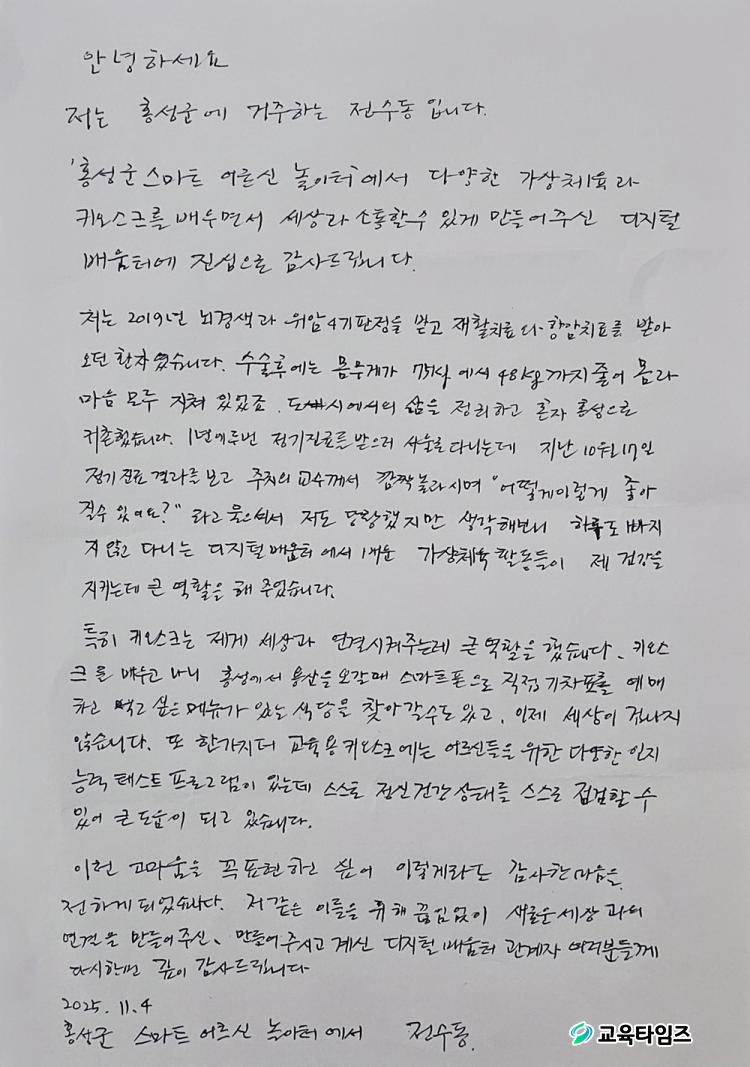 안녕하세요
저는 홍성군에 거주하는 전수동입니다.
'홍성군 스마트 어른신 놀이터'에서 다양한 가상체육과
키오스크를 배우면서 세상과 소통할수 있게 만들어주신 디지털
배움터에 진심으로 감사드립니다.
저는 2019년 뇌경색과 위암4기판정을 받고 재활치료와 항암치료를 받아
오던 환자였습니다. 수술후에는 몸무게가 75kg에서 48kg까지 줄어 몸과
마음 모두 지쳐 있었죠. 도시에서의 삶을 정리하고 혼자 홍성으로
귀촌했습니다. 1년에 두번 정기진료를 받으러 서울로 다니는데 지난 10월17일
정기진료 결과를 보고 주치의 교수께서 깜짝놀라시며 "어떻게이렇게 좋아
질수 있어요?" 라고 물으셔서 저도 당황했지만 생각해보니 하루도 빠지
지 않고 다니는 디지털배움터에서 배운 가상체육 활동들이 제 건강을
지키는데 큰 역할을 해 주었습니다.
특히 키오스크는 제게 세상과 연결시켜주는데 큰역할을 했습니다. 키오스
크를 배우고 나니 홍성에서 용산을 오갈때 스마트폰으로 직접 기차표를 예매
하고 먹고 싶은 메뉴가 있는 식당을 찾아갈수도 있고, 이제 세상이 겁나지
않습니다. 또 한가지더 교육용키오스크에는 어르신들을 위한 다양한 인지
능력 테스트 프로그램이 있는데 스스로 정신건강상태를 스스로 점검할 수
있어 큰도움이 되고 있습니다.
이런 고마움을 꼭표현하고 싶어 이렇게라도 감사한마음을
전하게되었습니다. 저 같은 이들을 위해 끊임없이 새로운세상과의
연결을 만들어주신, 만들어주시고 계신 디지털배움터 관계자 여러분들께
다시한번 깊이 감사드립니다
2025. 11. 4
홍성군 스마트 어르신 놀이터에서 전수동.
교육타임즈